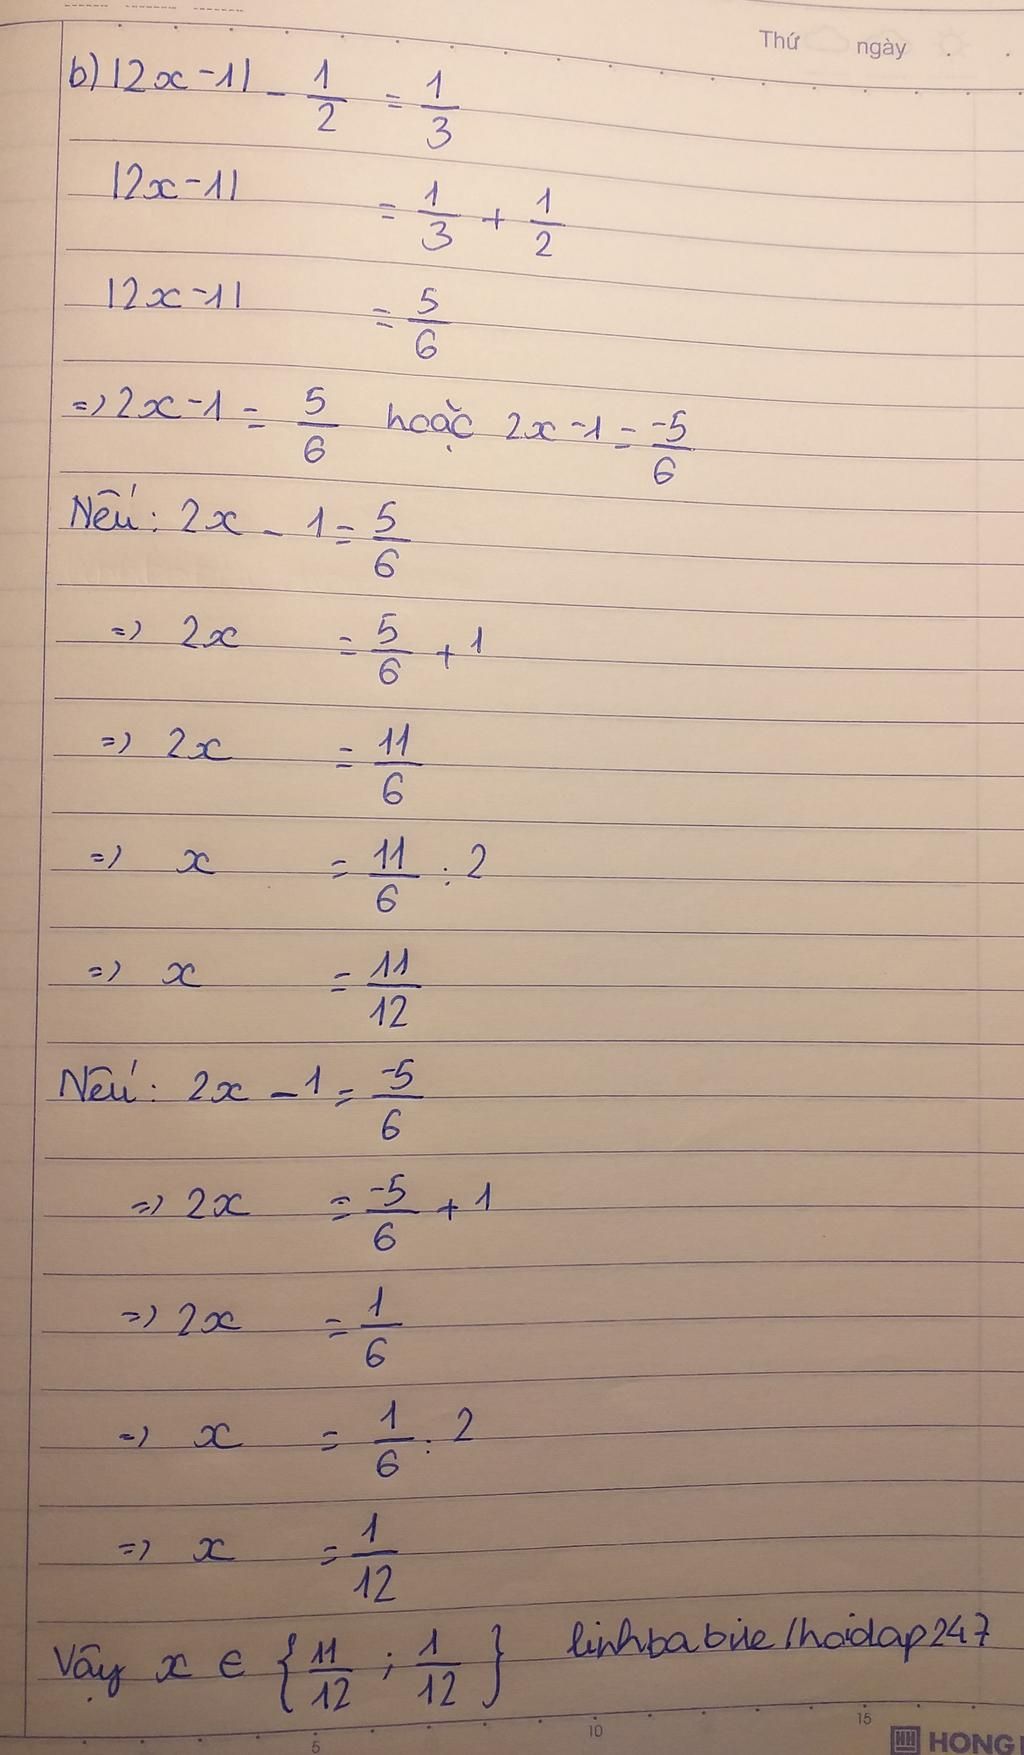 Thứ ngày
b) |2x-1| - 1/2 = 1/3
|2x-1| = 1/3 + 1/2
|2x-1| = 5/6
=> 2x-1 = 5/6 hoặc 2x-1 = -5/6
Nếu: 2x - 1 = 5/6
=> 2x = 5/6 + 1
=> 2x = 11/6
=> x = 11/6 : 2
=> x = 11/12
Nếu: 2x - 1 = -5/6
=> 2x = -5/6 + 1
=> 2x = 1/6
=> x = 1/6 : 2
=> x = 1/12
Vậy x ∈ {11/12 ; 1/12} /hoidap247
5 10 15
HONG